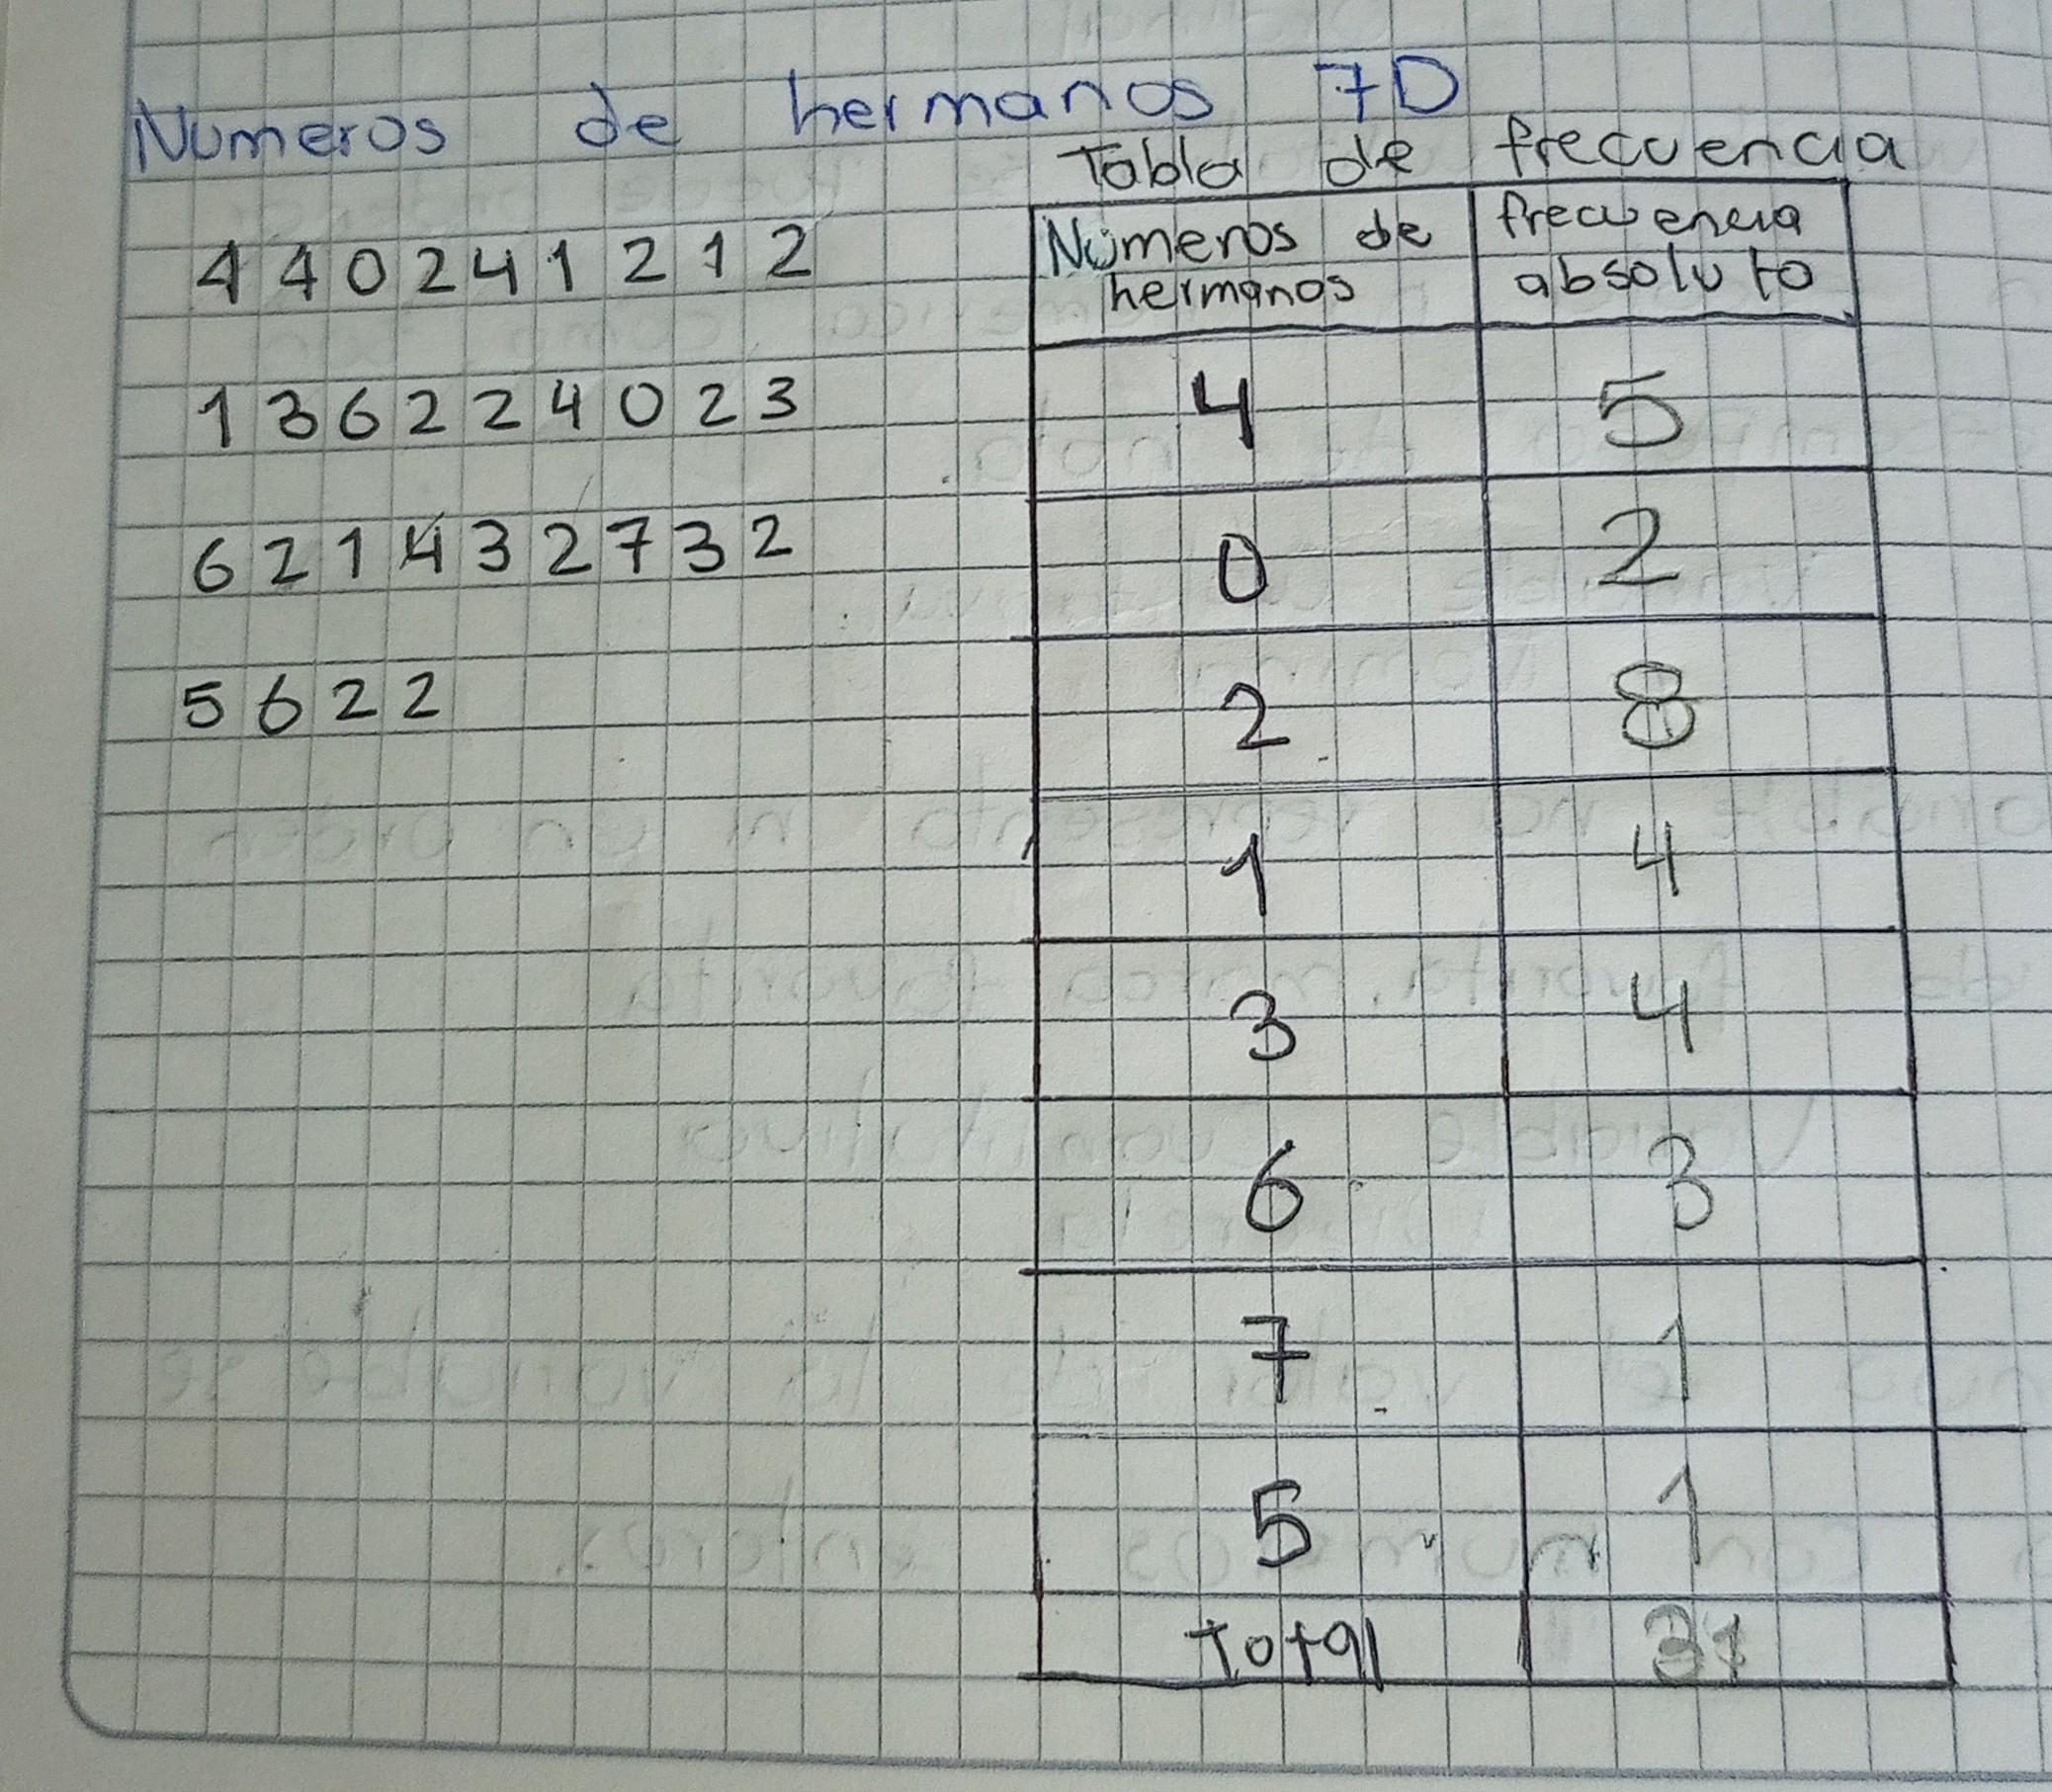 Numeros de hermanos 7D
4 4 0 2 4 1 2 1 2
1 3 6 2 2 4 0 2 3
6 2 1 4 3 2 7 3 2
5 6 2 2
Tabla de frecuencia
Números de hermanos frecuencia absoluto
4 5
0 2
2 8
1 4
3 4
6 3
7 1
5 1
total 31